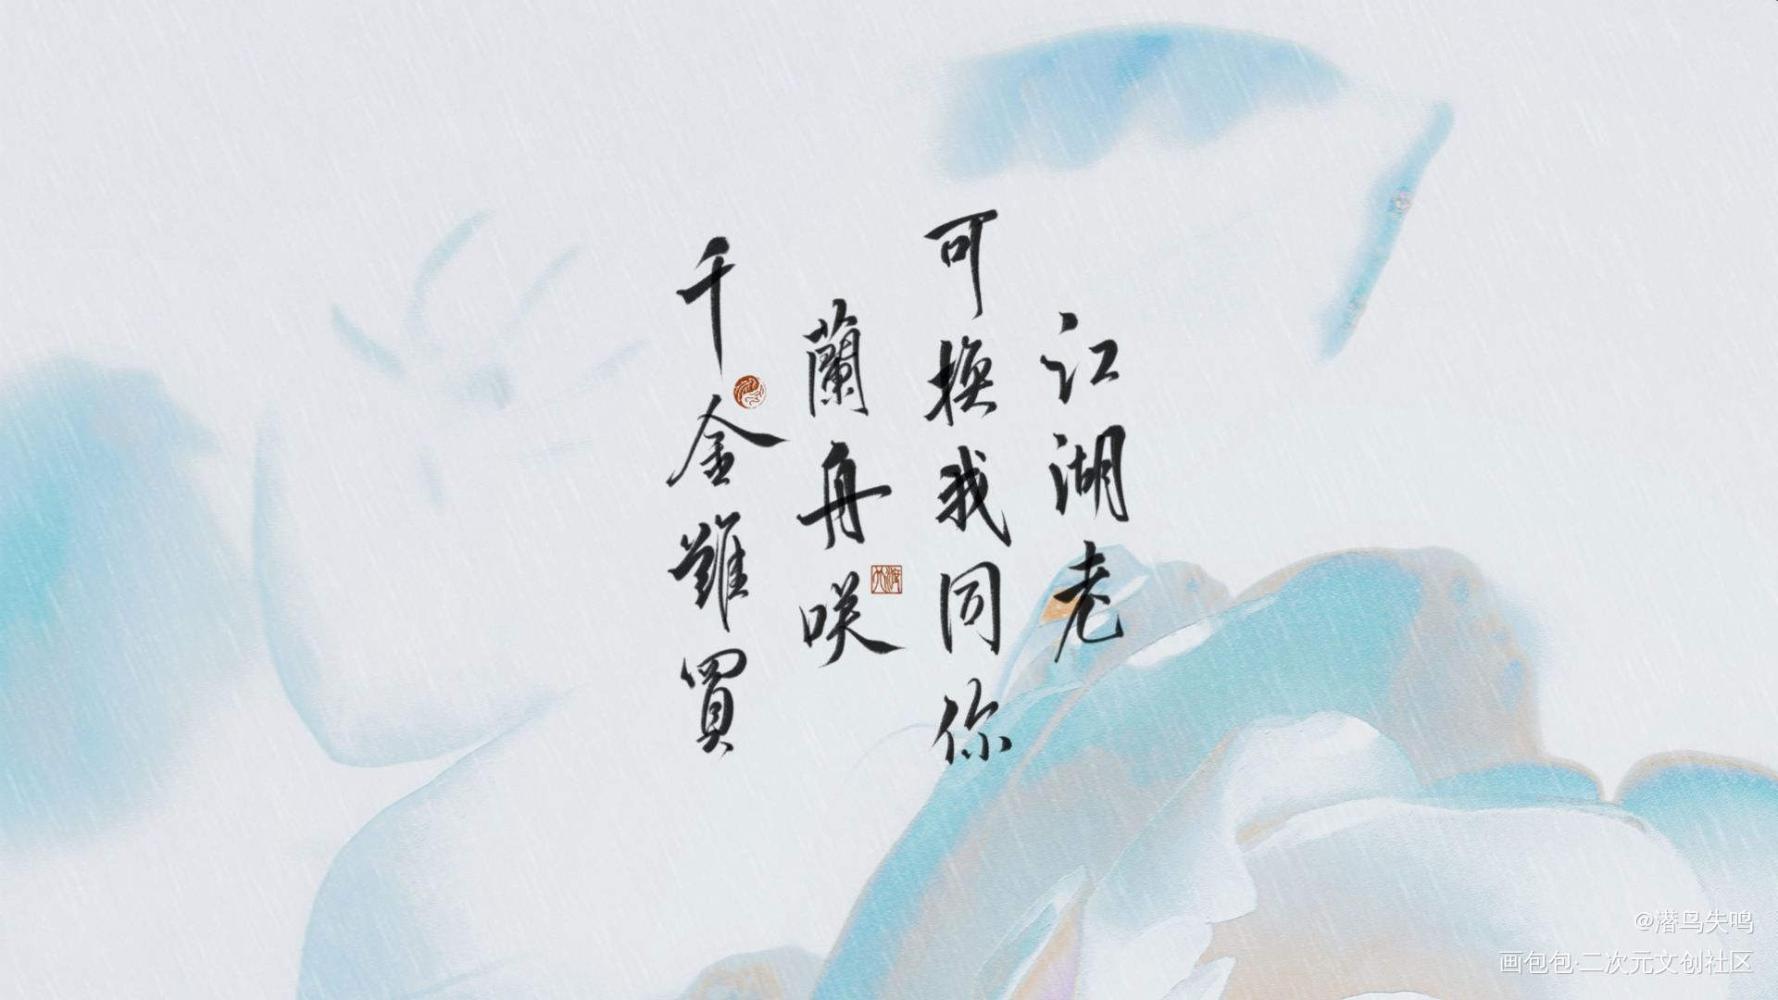 江湖老
可換我同你
蘭舟咲
千金難買
@潜鸟失鸣
画包包·二次元文创社区